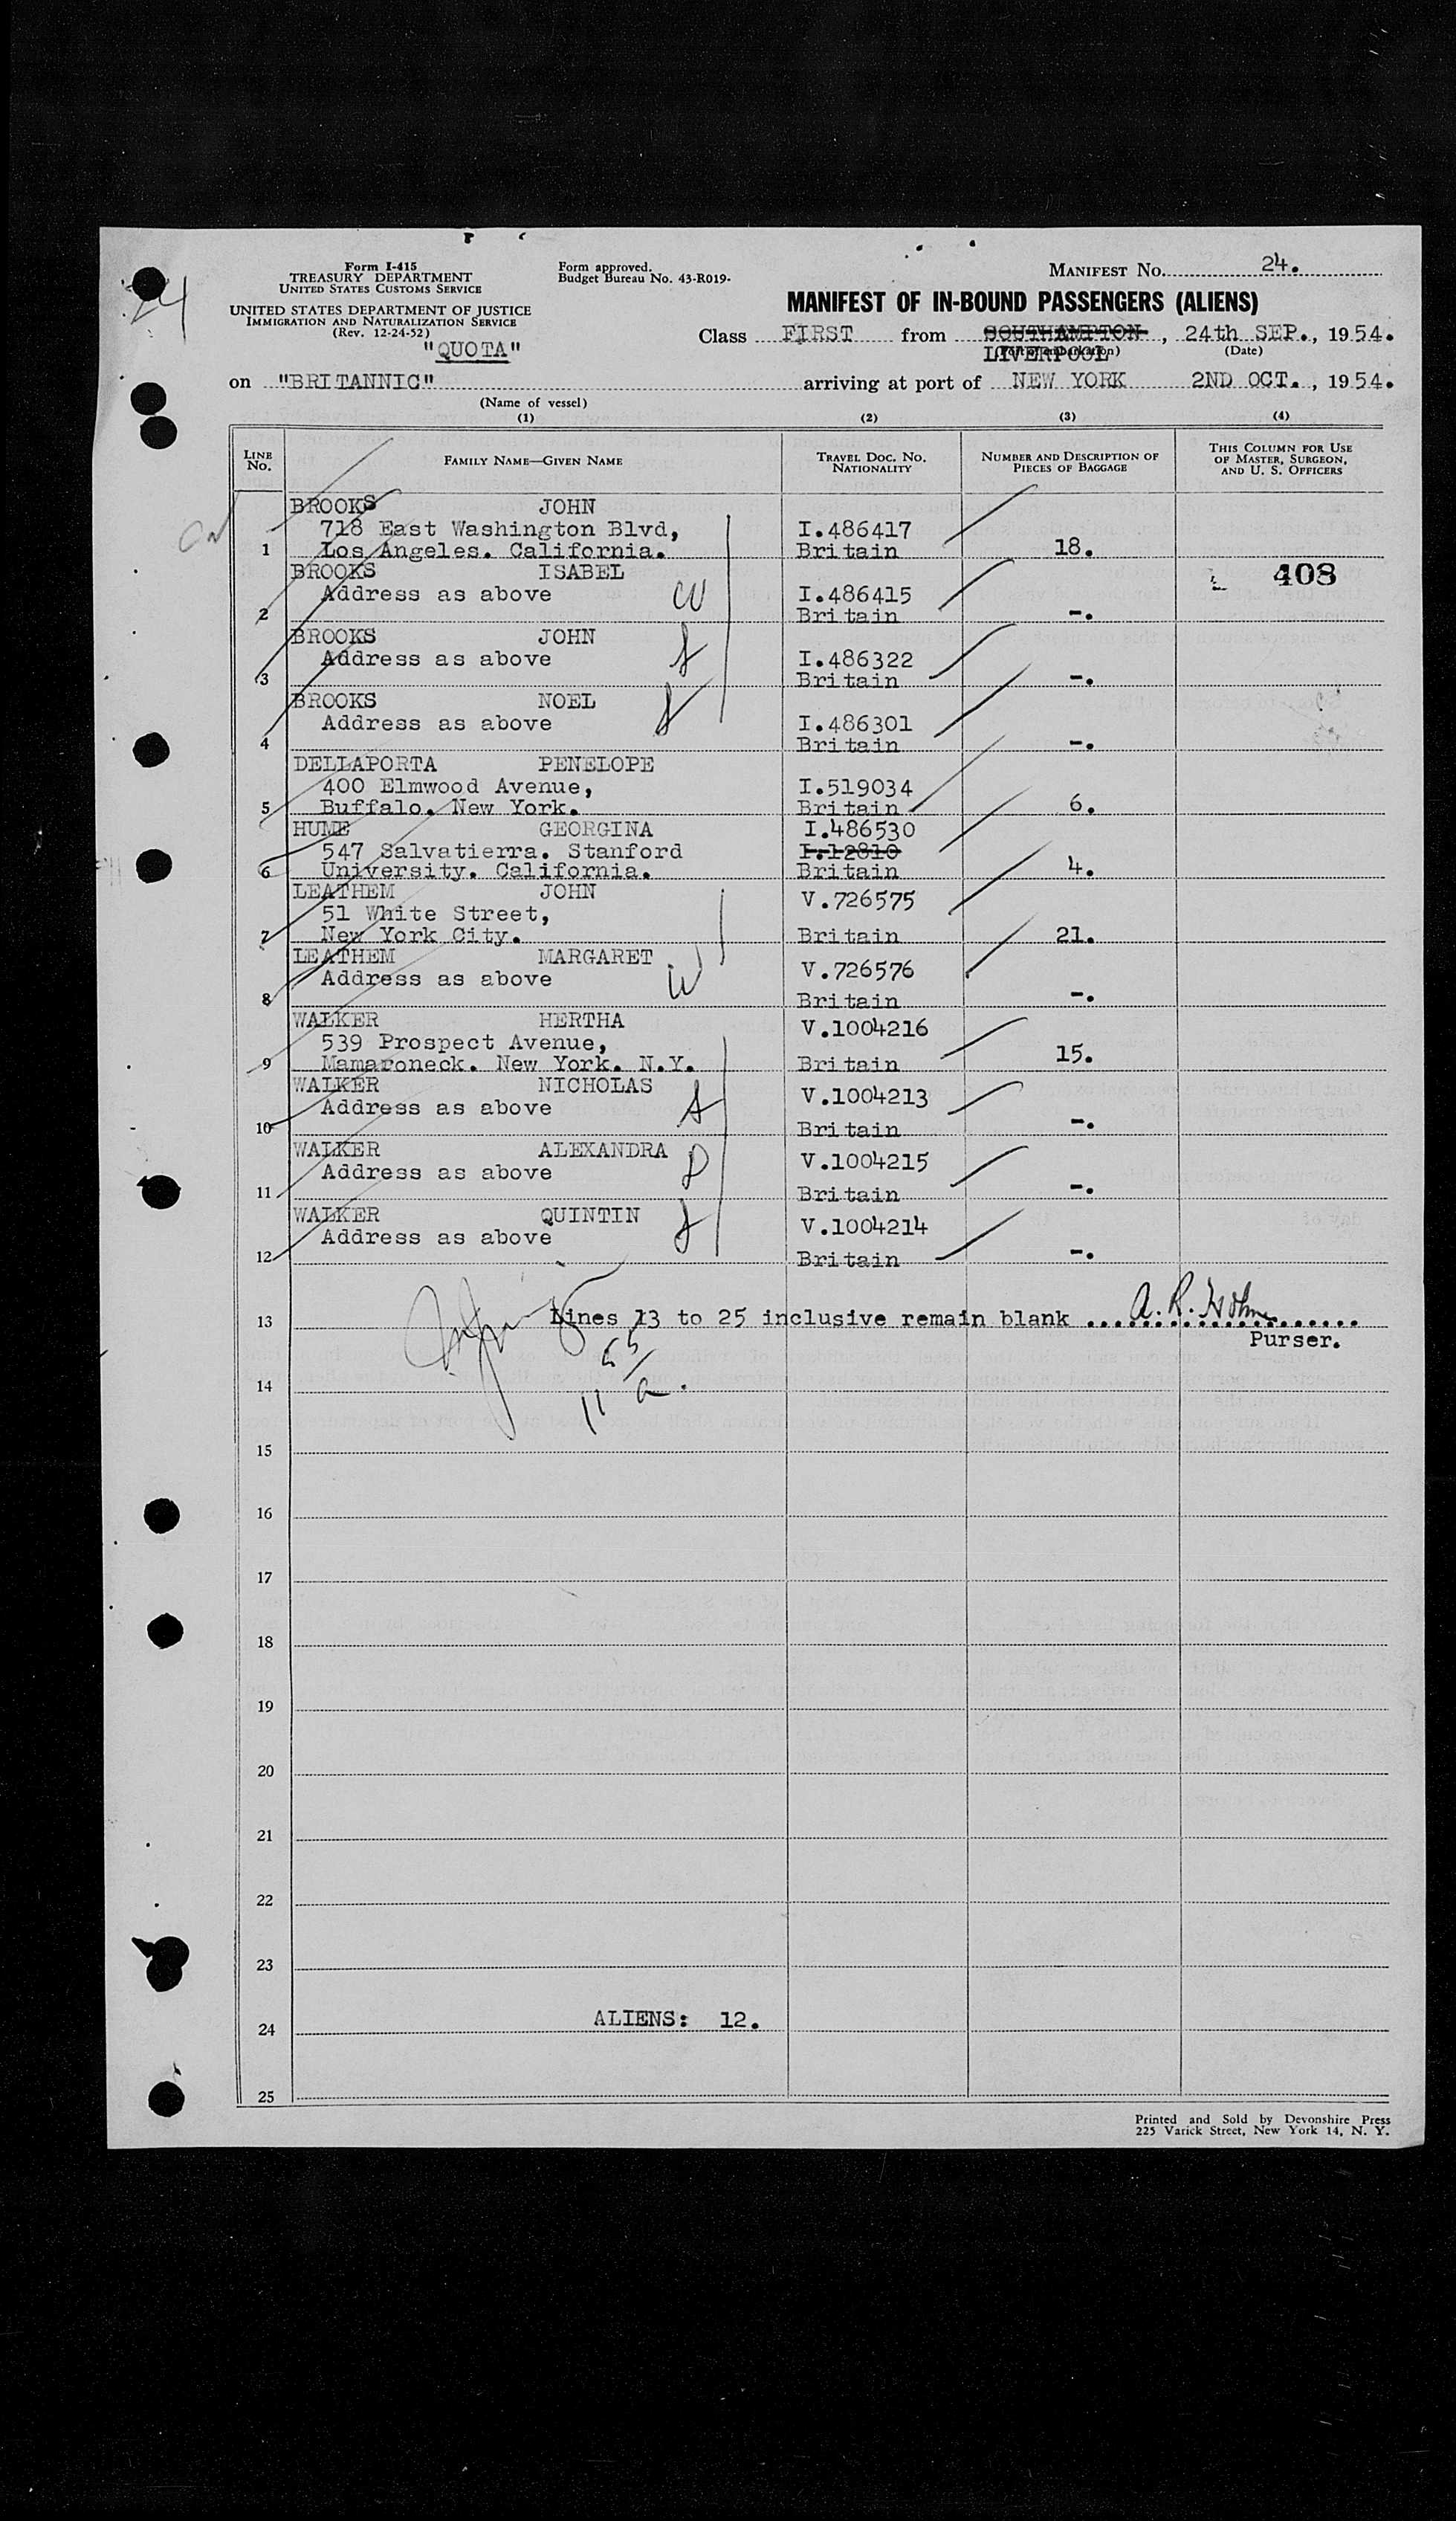 Form I-415
TREASURY DEPARTMENT
UNITED STATES CUSTOMS SERVICE
UNITED STATES DEPARTMENT OF JUSTICE
IMMIGRATION AND NATURALIZATION SERVICE
(Rev. 12-24-52)
"QUOTA"
Form approved.
Budget Bureau No. 43-R019-
MANIFEST No. 24.
24
MANIFEST OF IN-BOUND PASSENGERS (ALIENS)
Class FIRST from SOUTHAMPTON, 24th SEP., 1954.
LIVERPOOL (Port of embarkation) (Date)
on "BRITANNIC" arriving at port of NEW YORK 2ND OCT., 1954.
(Name of vessel)
(1) (2) (3) (4)
LINE No. FAMILY NAME—GIVEN NAME TRAVEL DOC. NO. NATIONALITY NUMBER AND DESCRIPTION OF PIECES OF BAGGAGE THIS COLUMN FOR USE OF MASTER, SURGEON, AND U. S. OFFICERS
BROOKS JOHN
718 East Washington Blvd, I.486417
1 Los Angeles. California. Britain 18.
BROOKS ISABEL 408
Address as above W I.486415
2 Britain -.
BROOKS JOHN
Address as above I.486322
3 Britain -.
BROOKS NOEL
Address as above I.486301
4 Britain -.
DELLAPORTA PENELOPE
400 Elmwood Avenue, I.519034
5 Buffalo. New York. Britain 6.
HUME GEORGINA I.486530
547 Salvatierra. Stanford I.12810
6 University. California. Britain 4.
LEATHEM JOHN V.726575
51 White Street,
7 New York City. Britain 21.
LEATHEM MARGARET W V.726576
Address as above
8 Britain -.
WALKER HERTHA V.1004216
539 Prospect Avenue,
9 Mamaroneck. New York. N.Y. Britain 15.
WALKER NICHOLAS V.1004213
Address as above
10 Britain -.
WALKER ALEXANDRA D V.1004215
Address as above
11 Britain -.
WALKER QUINTIN V.1004214
Address as above
12 Britain -.
13 Lines 13 to 25 inclusive remain blank
Purser.
14
15
16
17
18
19
20
21
22
23
24 ALIENS: 12.
25
Printed and Sold by Devonshire Press
225 Varick Street, New York 14, N. Y.